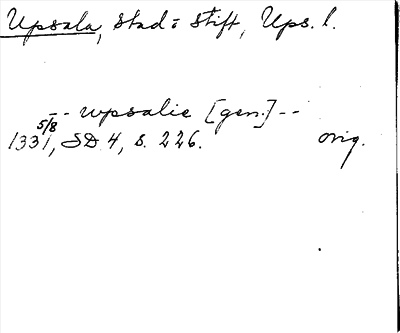 Upsala, stad o stift, Ups. l.
-- wpsalie [gen.] --
5/8
1331, SD 4, s. 226. orig.